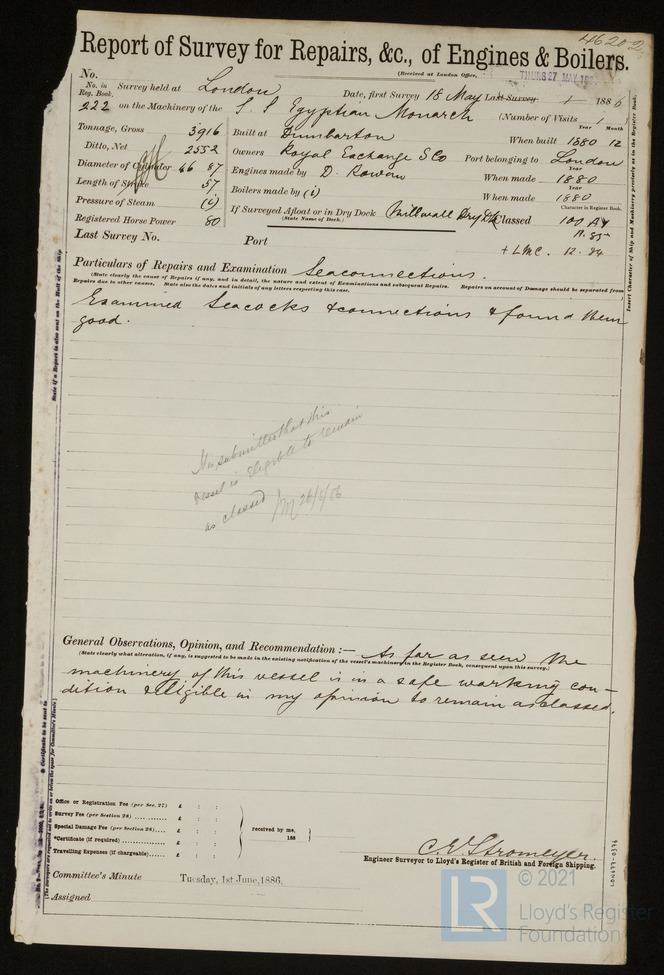 46202
Report of Survey for Repairs, &c., of Engines & Boilers.
(Received at London Office,
THURS 27 MAY 188
No.
No. in Reg. Book. Survey held at London Date, first Survey 18 May Last Survey 1 1886
222 on the Machinery of the S. S Egyptian Monarch (Number of Visits 1
Tonnage, Gross 3916 Built at Dumbarton When built 1880 12
Year Month
Ditto, Net 2552 Owners Royal Exchange S Co Port belonging to London
Diameter of Cylinder 46 87 Engines made by D. Rowan When made 1880
Year
Length of Stroke 57 Boilers made by (i) When made 1880
Year
Pressure of Steam (i) If Surveyed Afloat or in Dry Dock Millwall Dry Dk Classed 100 A1
(State Name of Dock.)
Character in Register Book.
Registered Horse Power 80 11.85
Last Survey No. Port + LMC. 12.84
Particulars of Repairs and Examination Seaconnections.
(State clearly the cause of Repairs if any, and in detail, the nature and extent of Examinations and subsequent Repairs. Repairs on account of Damage should be separated from
Repairs due to other causes. State also the dates and initials of any letters respecting this case.
Examined Seacocks & connections & found them
good.
submitted that this
vessel is eligible to remain
as classed
General Observations, Opinion, and Recommendation :— As far as seen the
(State clearly what alteration, if any, is suggested to be made in the existing notification of the vessel's machinery in the Register Book, consequent upon this survey.)
machinery of this vessel is in a safe working con-
dition & eligible in my opinion to remain as classed.
Office or Registration Fee (per Sec. 27) £ : :
Survey Fee (per Section 28) £ : :
Special Damage Fee (per Section 28) £ : : received by me,
*Certificate (if required) £ : : 188
Travelling Expenses (if chargeable) £ : :
C. E. Stromeyer.
Engineer Surveyor to Lloyd's Register of British and Foreign Shipping.
Committee's Minute Tuesday, 1st June, 1886.
Assigned
Insert Character of Ship and Machinery precisely as in the Register Book.
State if a Report is also sent on the Hull of the Ship
LR © 2021
Lloyd's Register
Foundation